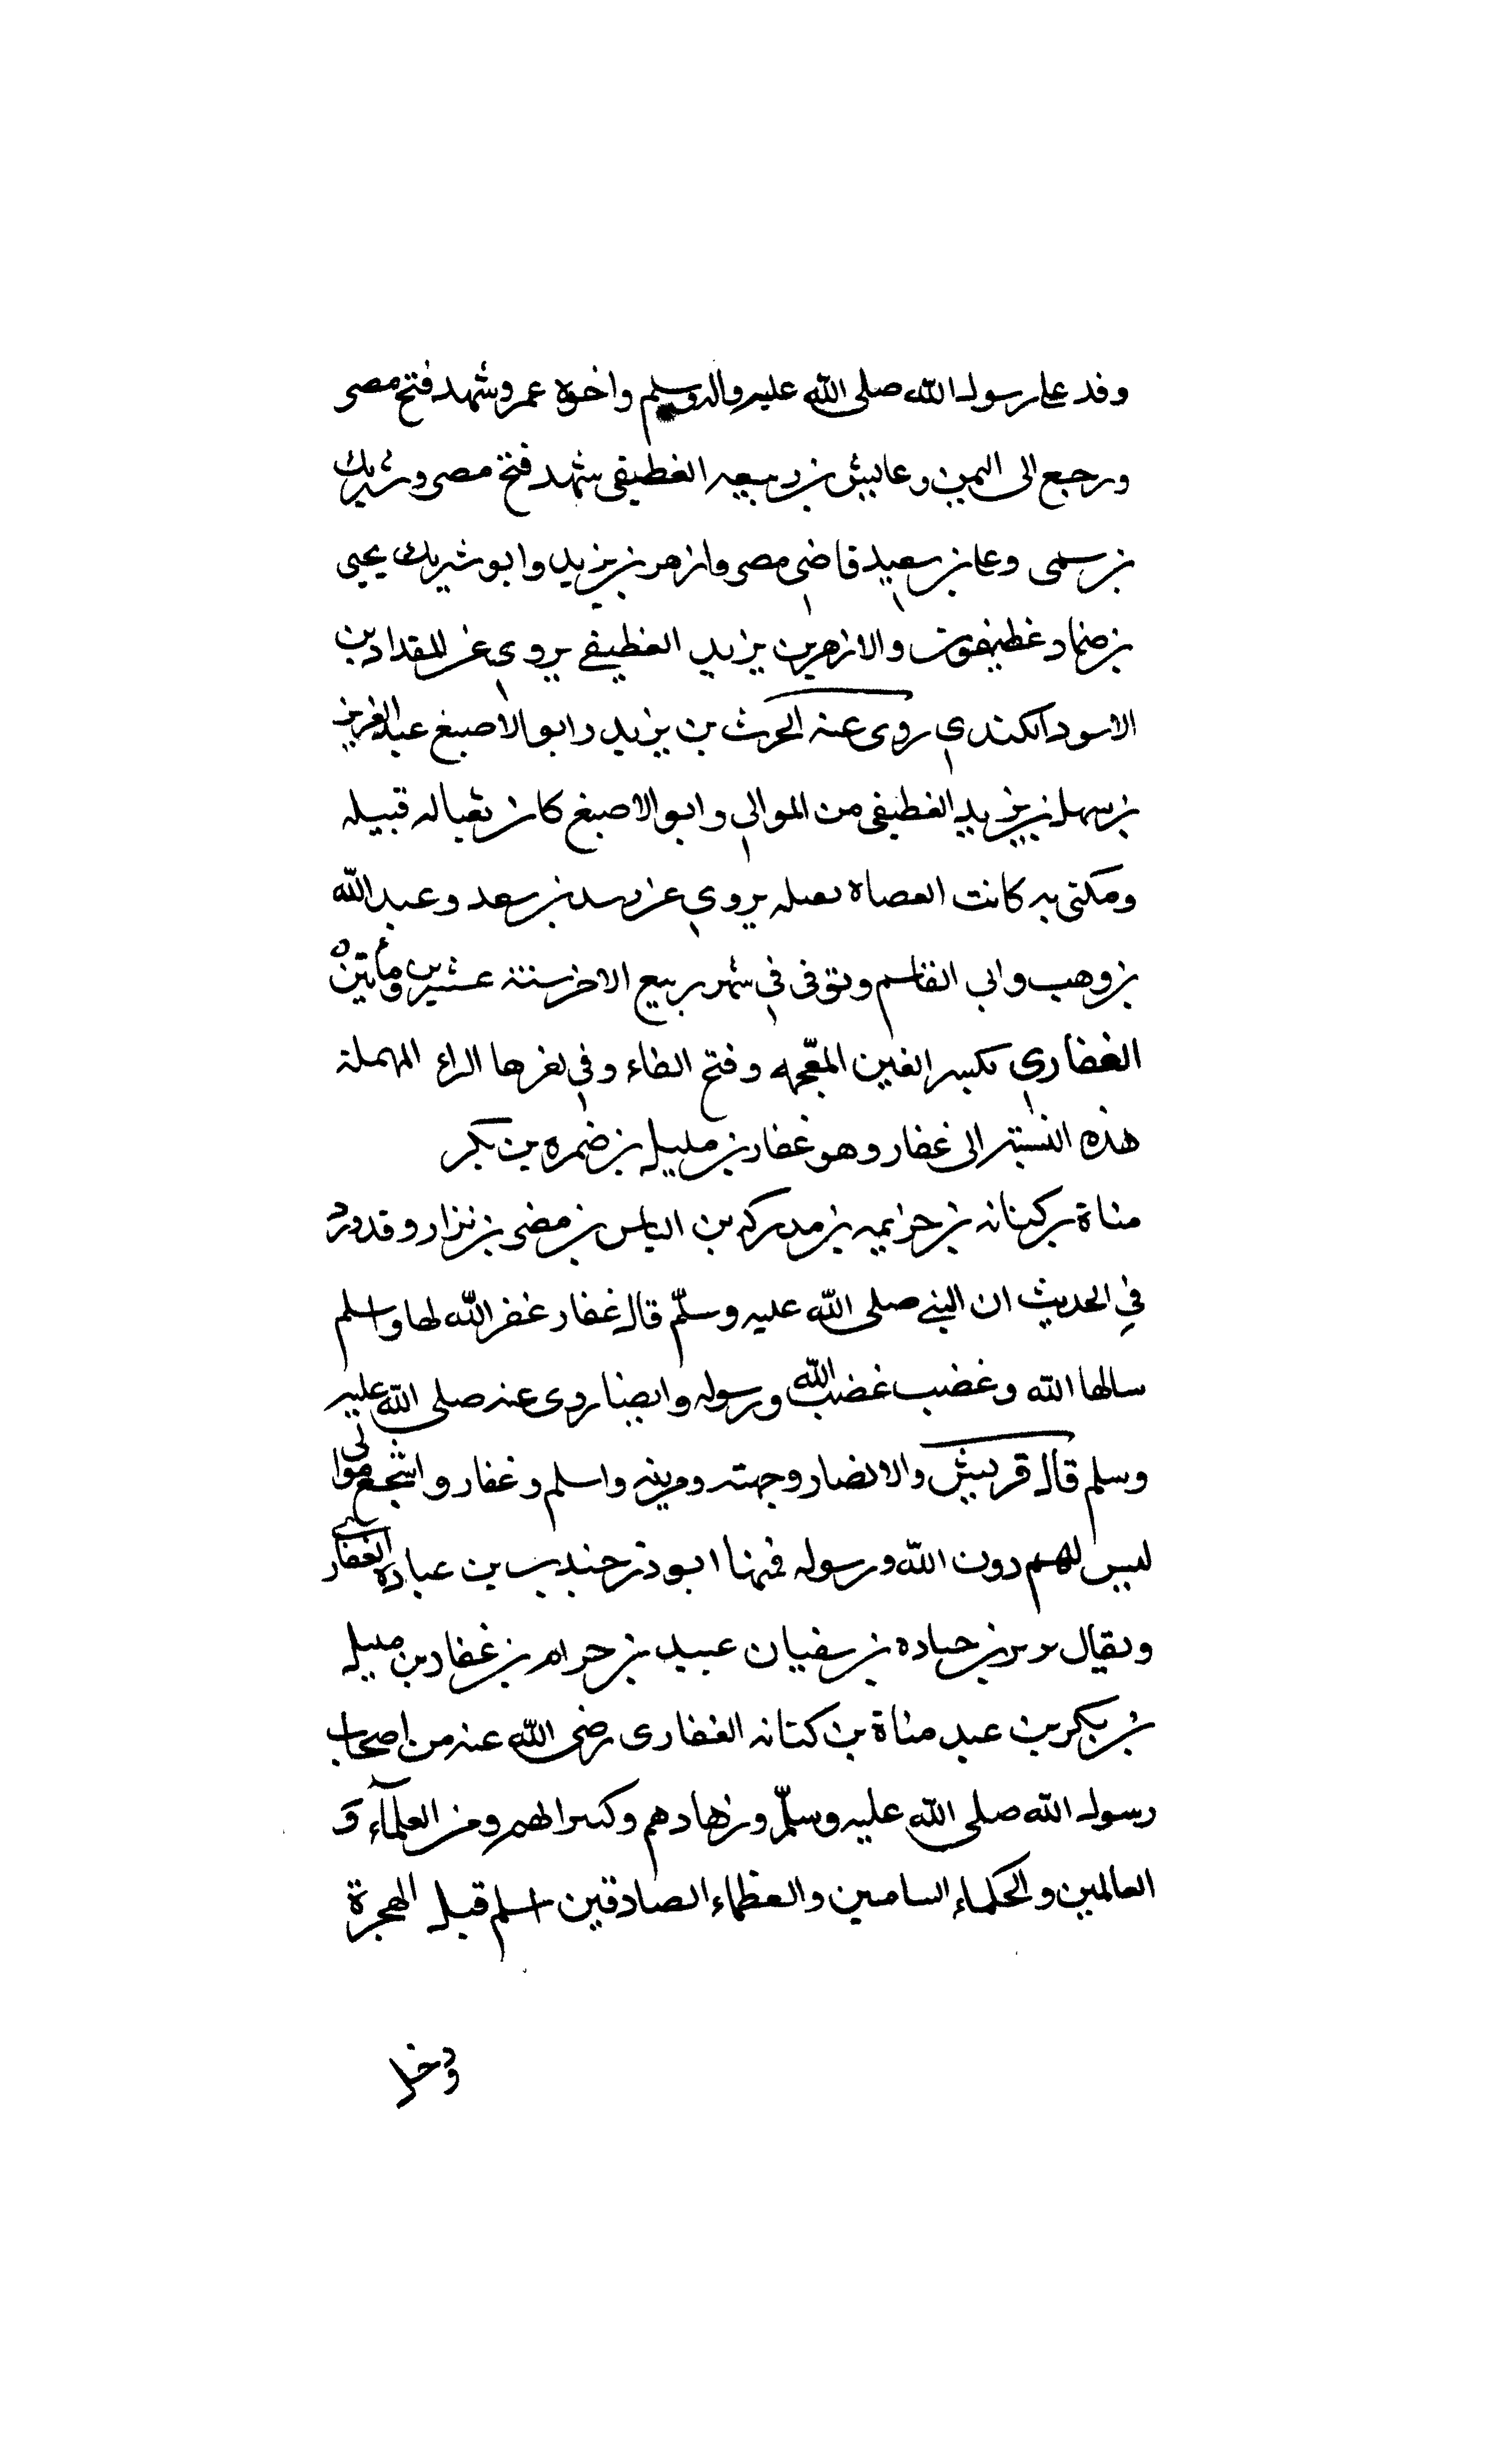 وفد على رسول الله صلى الله عليه واله وسلم واخوه عمرو شهد فتح مصر
ورجع الى اليمن وعابيش بن ربيعه الغطيفى شهد فتح مصر وشريك
بن سمى وعا بن سعيد قاضى مصر وازهر بن يزيد وابو شريك يحيى
بن ضماد غطيفون والازهر بن يزيد الغطيفي يروى عن المقداد بن
الاسود الكندي روى عنه الحرث بن يزيد وابو الاصبغ عبد العزيز
بن سهل بن يزيد الغطيفى من الموالى وابو الاصبغ كان يقال له قبيله
ومكتى به كانت القضاه يروي عن بن سعد وعبد الله
بن وهب وابى القاسم وتوفى في شهر ربيع الاخر سنة عشرين ومأتين ه
الغفاري بكسر الغين المعجمه وفتح الفاء وفي اخرها الراء المهملة
هذه النسبة الى غفار وهو غفار بن مليل بن ضمره بن بكر
مناة بن كنانه بن خزيمه بن مدركه بن الياس بن مضر بن نزار وقد ورد
في الحديث ان النبي صلى الله عليه وسلّم قال غفار غفر الله لها واسلم
سالمها الله وغضب غضب الله ورسوله وايضا روى عنه صلى الله عليه
وسلم قال قريش والانصار وجهنه ومزينه واسلم وغفار واشجع موالى
ليس لهم دون الله ورسوله فمنها ابو ذر جندب بن عباده الغفارى
ويقال برير بن جناده بن سفيان عبيد بن حرام بن غفار بن مليل
بن بكر بن عبد مناة بن كنانه الغفارى رضى الله عنه من اصحاب
رسول الله صلى الله عليه وسلّم وزهادهم وكبرائهم ومن العلمآء و
العالمين والحكماء السامين والعظماء الصادقين اسلم قبل الهجرة
ودخل